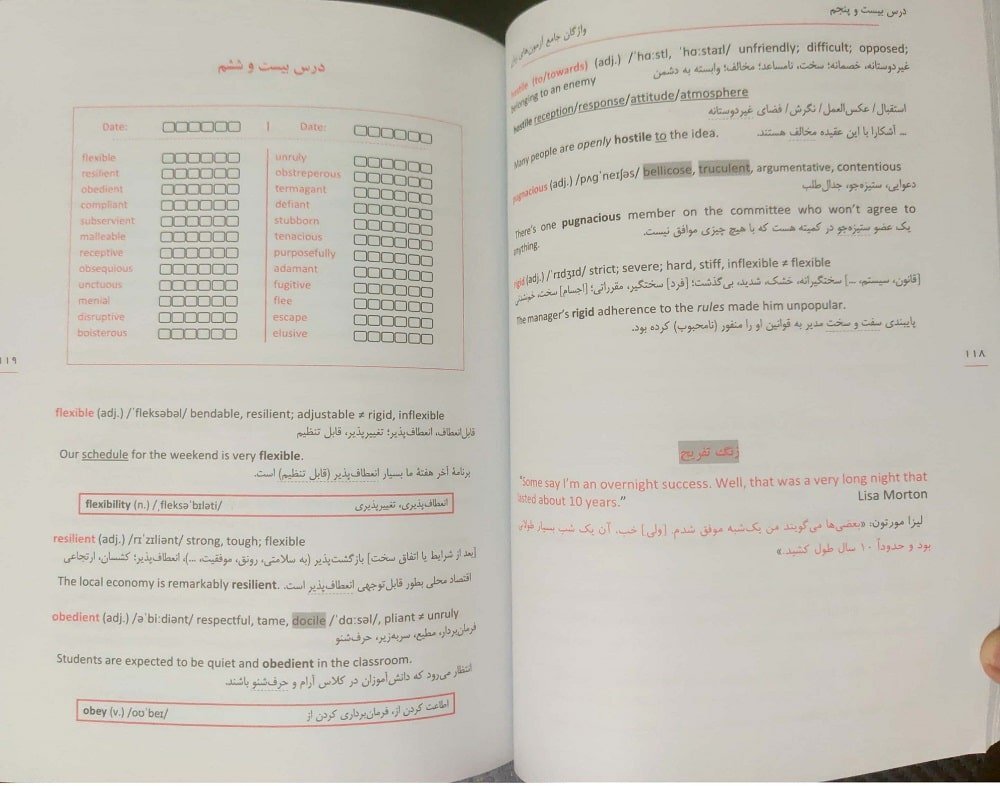 درس بیست و پنجم
واژگان جامع آزمون‌های زبان
hostile (to/towards) (adj.) /ˈhɑːstl, ˈhɑːstaɪl/ unfriendly; difficult; opposed;
belonging to an enemy
غیردوستانه، خصمانه؛ سخت، نامساعد؛ مخالف؛ وابسته به دشمن
hostile reception/response/attitude/atmosphere
استقبال/ عکس‌العمل/ نگرش/ فضای غیردوستانه
Many people are openly hostile to the idea.
... آشکارا با این عقیده مخالف هستند.
pugnacious (adj.) /pʌɡˈneɪʃəs/ bellicose, truculent, argumentative, contentious
دعوایی، ستیزه‌جو، جدال‌طلب
There’s one pugnacious member on the committee who won’t agree to
anything.
یک عضو ستیزه‌جو در کمیته هست که با هیچ چیزی موافق نیست.
rigid (adj.) /ˈrɪdʒɪd/ strict; severe; hard, stiff, inflexible ≠ flexible
[قانون، سیستم، ...] سختگیرانه، خشک، شدید، بی‌گذشت؛ [فرد] سختگیر، مقرراتی؛ [اجسام] سخت،
The manager’s rigid adherence to the rules made him unpopular.
پایبندی سفت و سخت مدیر به قوانین او را منفور (نامحبوب) کرده بود.
۱۱۸
زنگ تفریح
“Some say I’m an overnight success. Well, that was a very long night that
lasted about 10 years.”
Lisa Morton
لیزا مورتون: «بعضی‌ها می‌گویند من یک‌شبه موفق شدم. [ولی] خب، آن یک شب بسیار طولانی
بود و حدوداً ۱۰ سال طول کشید.»
درس بیست و ششم
Date: | Date:
flexible unruly
resilient obstreperous
obedient termagant
compliant defiant
subservient stubborn
malleable tenacious
receptive purposefully
obsequious adamant
unctuous fugitive
menial flee
disruptive escape
boisterous elusive
۱۱۹
flexible (adj.) /ˈfleksəbəl/ bendable, resilient; adjustable ≠ rigid, inflexible
قابل‌انعطاف، انعطاف‌پذیر؛ تغییرپذیر، قابل تنظیم
Our schedule for the weekend is very flexible.
برنامهٔ آخر هفتهٔ ما بسیار انعطاف‌پذیر (قابل تنظیم) است.
flexibility (n.) /ˌfleksəˈbɪləti/ انعطاف‌پذیری، تغییرپذیری
resilient (adj.) /rɪˈzɪliənt/ strong, tough; flexible
[بعد از شرایط یا اتفاق سخت] بازگشت‌پذیر (به سلامتی، رونق، موفقیت، ...)، انعطاف‌پذیر؛ کشسان، ارتجاعی
The local economy is remarkably resilient. اقتصاد محلی بطور قابل‌توجهی انعطاف‌پذیر است.
obedient (adj.) /əˈbiːdiənt/ respectful, tame, docile /ˈdɑːsəl/, pliant ≠ unruly
فرمان‌بردار، مطیع، سربه‌زیر، حرف‌شنو
Students are expected to be quiet and obedient in the classroom.
انتظار می‌رود که دانش‌آموزان در کلاس آرام و حرف‌شنو باشند.
obey (v.) /oʊˈbeɪ/ اطاعت کردن از، فرمان‌برداری کردن از